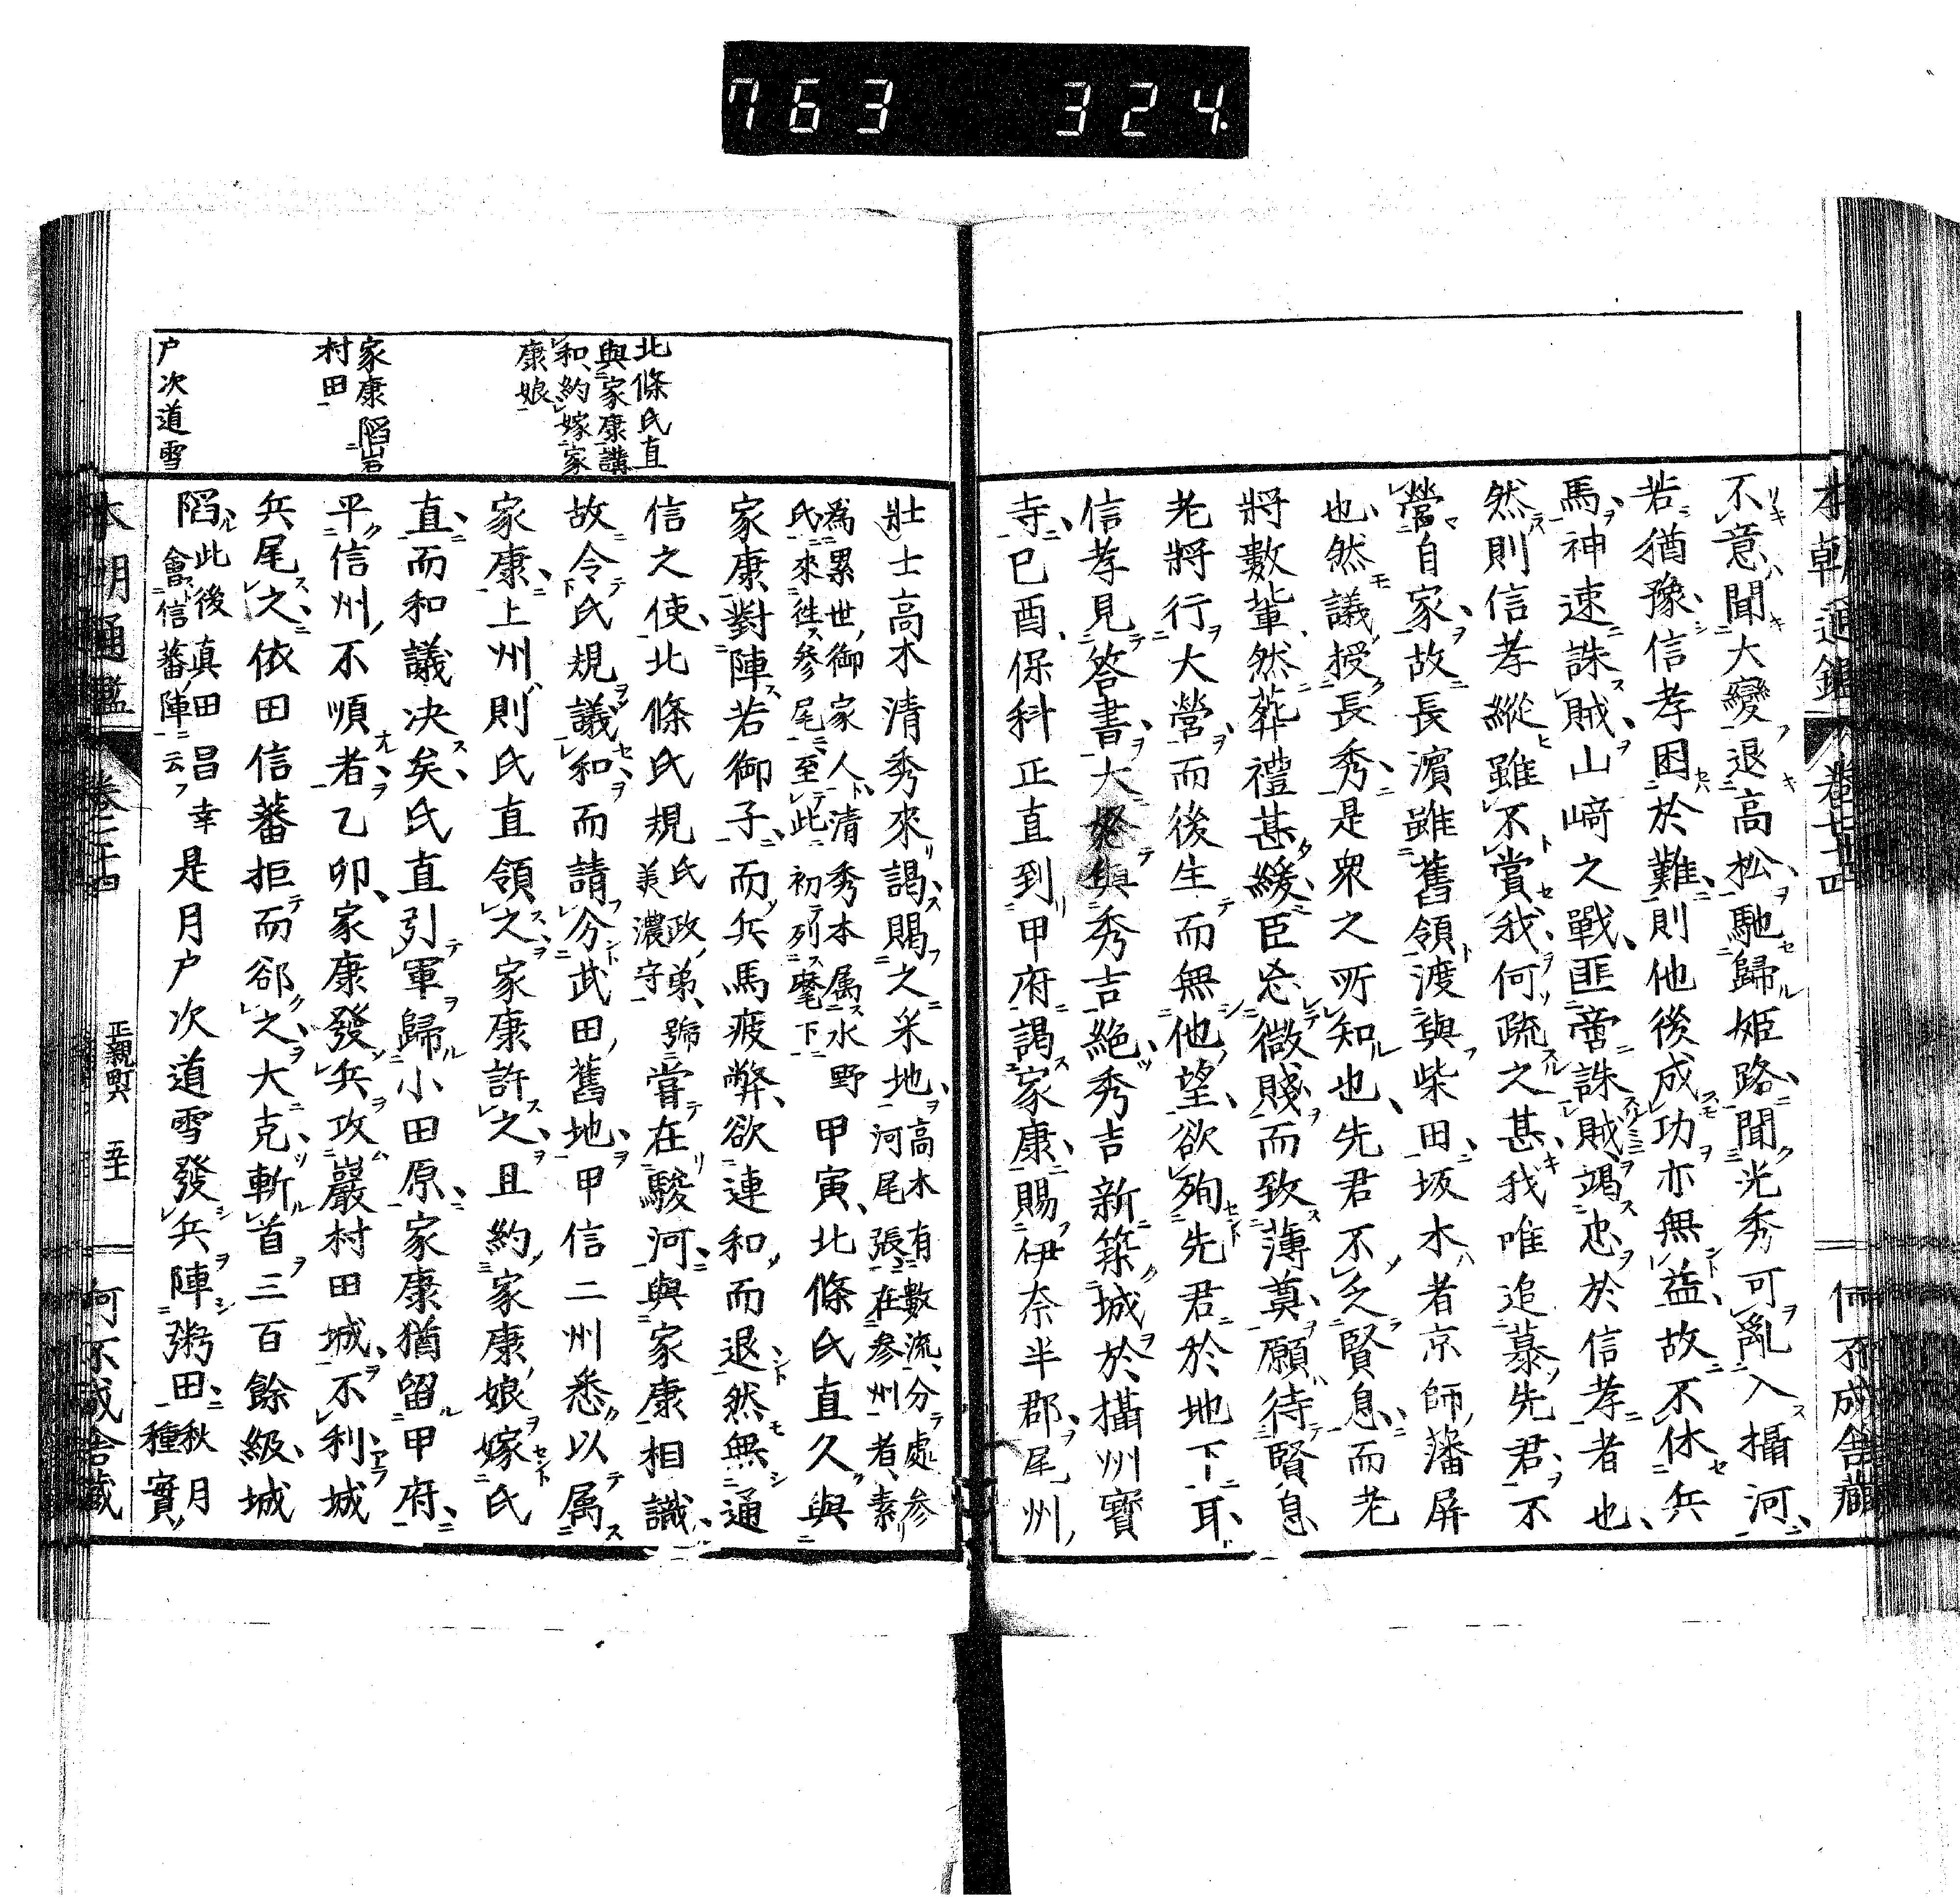 763 324
本朝通鑑 卷七十四 何不成舎藏
不意聞大變退高松馳歸姬路聞光秀可亂入攝河
若猶豫信孝困於難則他後成功亦無益故不休兵
馬神速誅賊山﨑之戰匪啻誅賊竭忠於信孝者也
然則信孝縱雖不賞我何疏之甚我唯追慕先君不
營自家故長濱雖舊領渡與柴田坂木者京師藩屏
也然議授長秀是衆之所知也先君不乏賢息而老
將數輩然葬禮甚緩臣忘微賤而致薄奠願待賢息
老將行大營而後生而無他望欲殉先君於地下耳
信孝見答書大與秀吉絶秀吉新築城於攝州寳
寺己酉保科正直到甲府謁家康賜伊奈半郡尾州
壯士高木清秀來謁賜之采地高木有數流分處參
河尾張在參州者素
爲累世御家人清秀本属水野
氏來徃參尾至此初列麾下甲寅北條氏直久與
家康對陣若御子而兵馬疲弊欲連和而退然無通
信之使北條氏規氏政弟號
美濃守嘗在駿河與家康相識
故令氏規議和而請分武田舊地甲信二州悉以属
家康上州則氏直領之家康許之且約家康娘嫁氏
直而和議决矣氏直引軍歸小田原家康猶留甲府
平信州不順者乙卯家康發兵攻巖村田城不利城
兵尾之依田信蕃拒而郤之大克斬首三百餘級城
陷此後真田昌幸
會信蕃陣云是月戸次道雪發兵陣粥田秋月
種實
北條氏直
與家康講
和約嫁家
康娘
家康陷岩
村田
戸次道雪
本朝通鑑 卷七十四 正親町 五 何不成舎藏